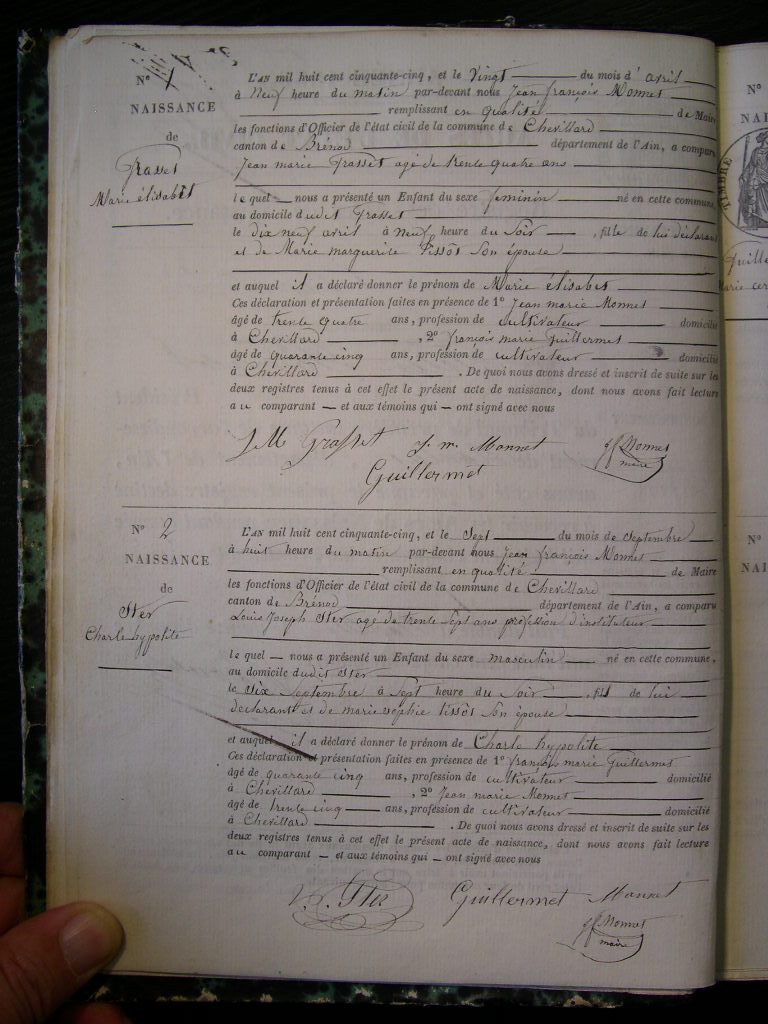 N° 1
NAISSANCE
de
Grasset
Marie élisabet
L'AN mil huit cent cinquante-cinq, et le Vingt du mois d' avril
à Neuf heure du matin par-devant nous Jean françois Monnet
remplissant en qualité de Maire
les fonctions d'Officier de l'état civil de la commune de Chevillard
canton de Brénod département de l'Ain, a comparu
Jean marie Grasset agé de trente quatre ans
le quel — nous a présenté un Enfant du sexe feminin né en cette commune,
au domicile dudit Grasset
le dix neuf avril à neuf heure du Soir, fille de lui déclarant
et de Marie marguerite tissot Son épouse
et auquel il a déclaré donner le prénom de Marie élisabet
Ces déclaration et présentation faites en présence de 1° Jean marie Monnet
âgé de trente quatre ans, profession de cultivateur domicilié
à Chevillard, 2° françois marie Guillermet
âgé de quarante cinq ans, profession de cultivateur domicilié
à Chevillard. De quoi nous avons dressé et inscrit de suite sur les
deux registres tenus à cet effet le présent acte de naissance, dont nous avons fait lecture
au comparant — et aux témoins qui — ont signé avec nous
JM Grasset J. m. Monnet jf Monnet
maire
Guillermet
N° 2
NAISSANCE
de
Ster
Charle hypolite
L'AN mil huit cent cinquante-cinq, et le Sept du mois de Septembre
à huit heure du matin par-devant nous Jean françois Monnet
remplissant en qualité de Maire
les fonctions d'Officier de l'état civil de la commune de Chevillard
canton de Brénod département de l'Ain, a comparu
Louis Joseph Ster agé de trente Sept ans profession d'instituteur
le quel — nous a présenté un Enfant du sexe masculin né en cette commune,
au domicile dudit Ster
le Six Septembre à Sept heure du Soir, fils de lui
déclarant et de marie sophie tissot Son épouse
et auquel il a déclaré donner le prénom de Charle hypolite
Ces déclaration et présentation faites en présence de 1° françois marie Guillermet
âgé de quarante cinq ans, profession de cultivateur domicilié
à Chevillard, 2° Jean marie Monnet
âgé de trente cinq ans, profession de cultivateur domicilié
à Chevillard. De quoi nous avons dressé et inscrit de suite sur les
deux registres tenus à cet effet le présent acte de naissance, dont nous avons fait lecture
au comparant — et aux témoins qui — ont signé avec nous
Ster Guillermet Monnet
jf Monnet
maire
N°
NAI
TIMBRE
N°
NAI